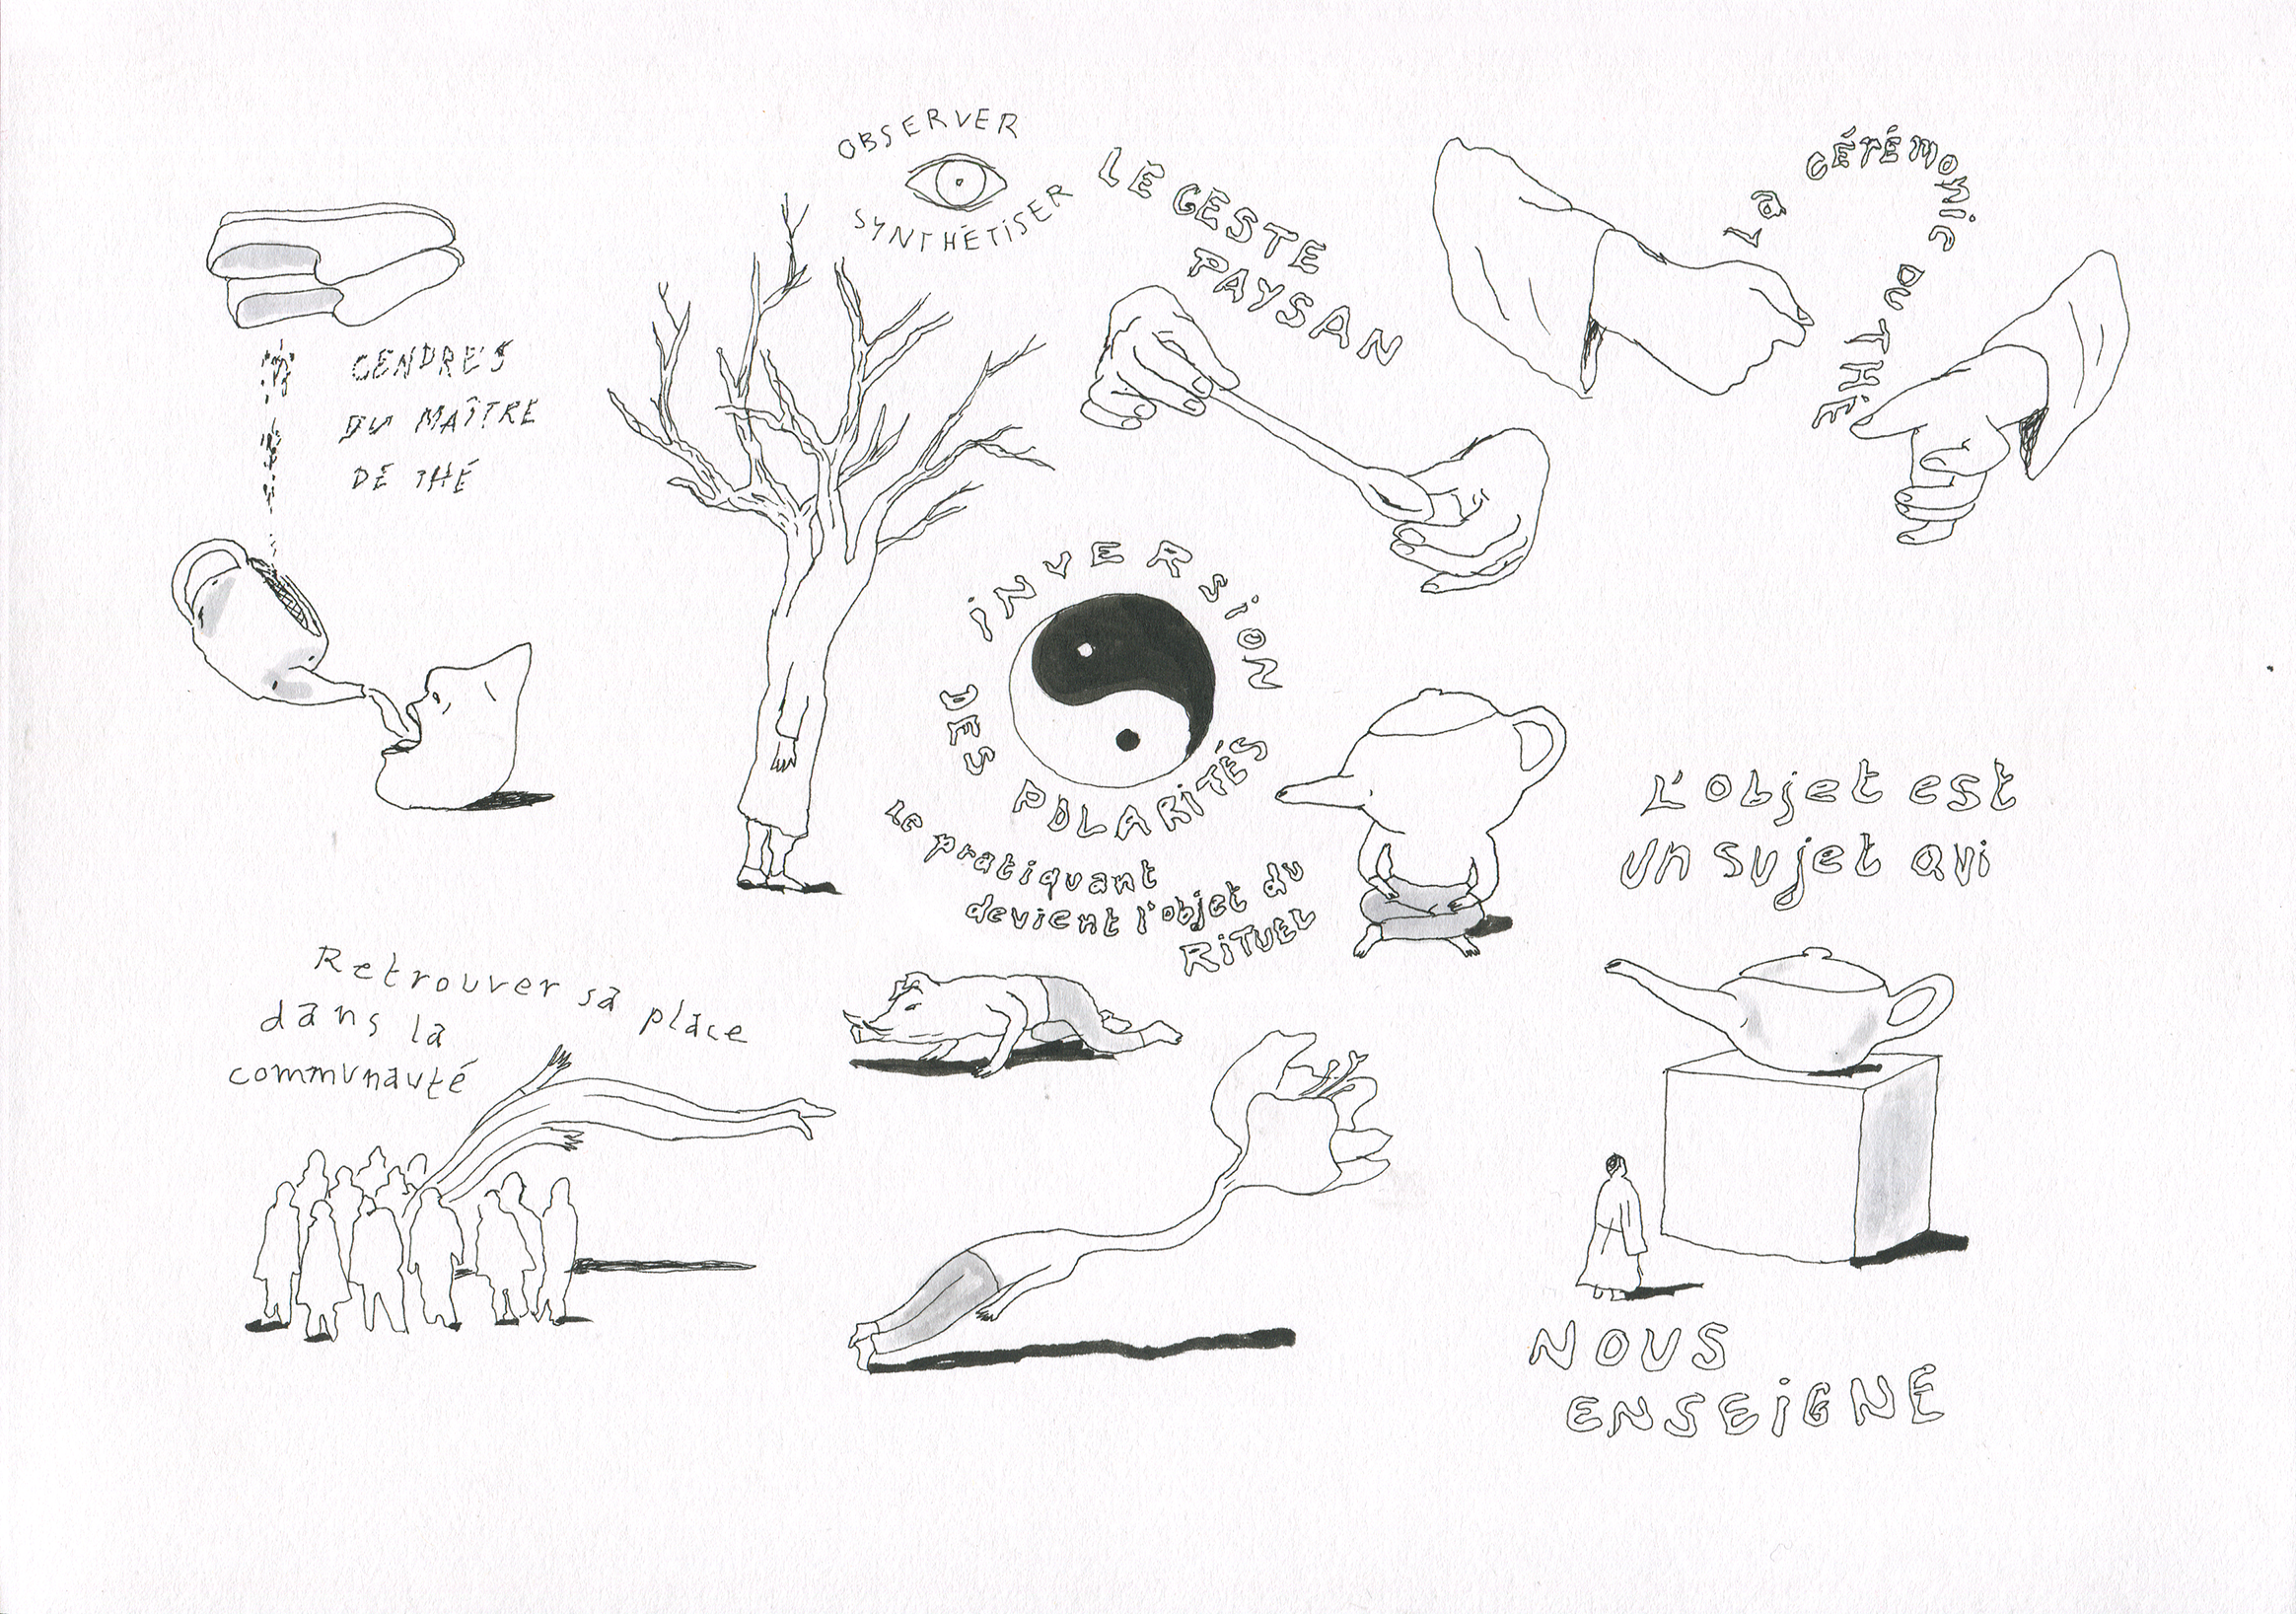 OBSERVER
SYNTHÉTISER
LE GESTE
PAYSAN
La CÉRÉMONiE DU THÉ
CENDRES
DU MAÎTRE
DE THÉ
iNVERSiON
DES POLARiTÉS
Le pratiquant
devient l'objet du
RiTUEL
L'objet est
un sujet qui
Retrouver sa place
dans la
communauté
NOUS
ENSEiGNE